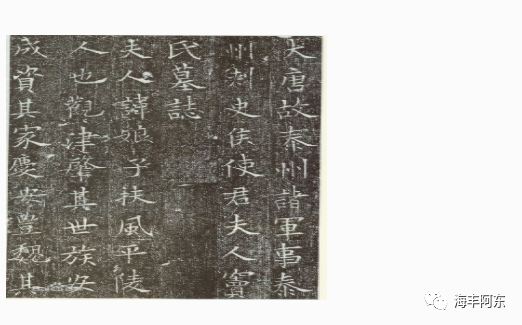 大唐故秦州諸軍事秦
州刺史侯使君夫人竇
氏墓誌
夫人諱娘子扶風平陵
人也觀津肇其世族安
成資其家慶安豊魏其
海丰阿东